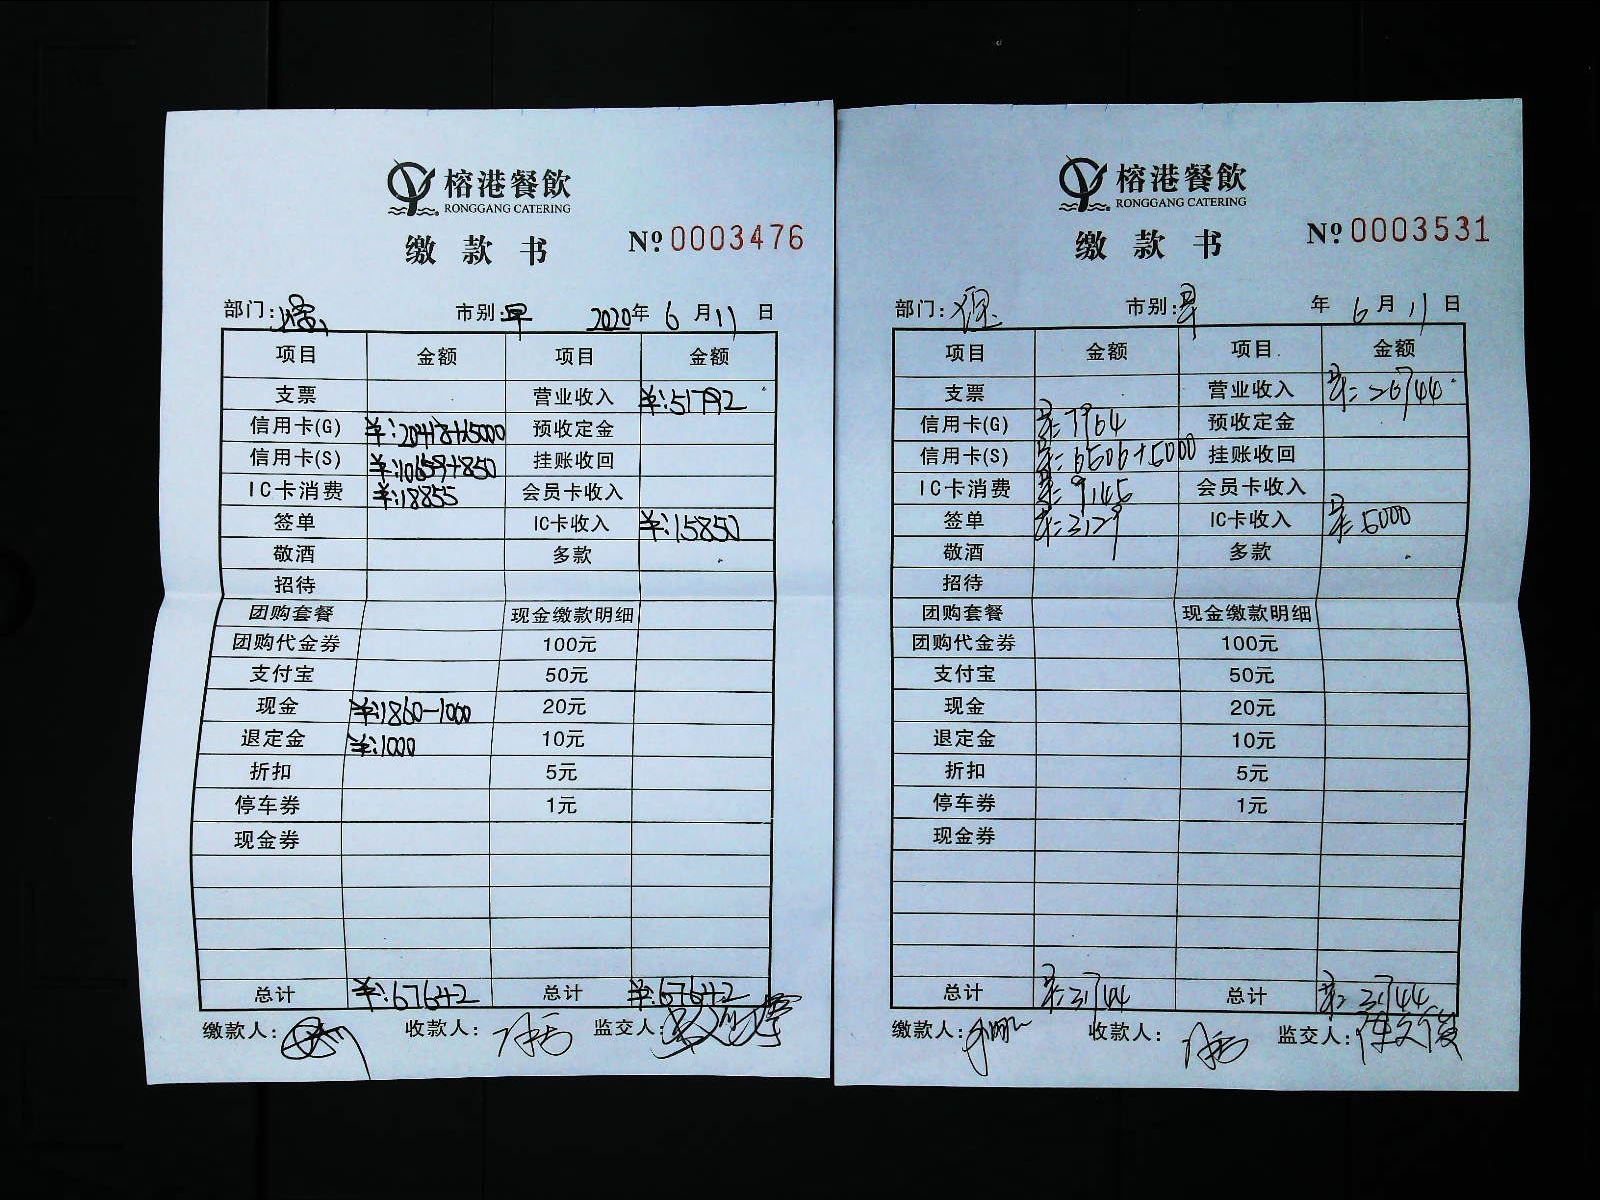 榕港餐飲
RONGGANG CATERING
缴款书 Nº 0003476
部门: 市别:早 2020年 6月11日
项目 金额 项目 金额
支票 营业收入 ¥:51792
信用卡(G) ¥:20418+15000 预收定金
信用卡(S) ¥:10659+850 挂账收回
IC卡消费 ¥:18855 会员卡收入
签单 IC卡收入 ¥:15850
敬酒 多款
招待
团购套餐 现金缴款明细
团购代金券 100元
支付宝 50元
现金 ¥:1860-1000 20元
退定金 ¥:1000 10元
折扣 5元
停车券 1元
现金券
总计 ¥:67642 总计 ¥:67642
缴款人: 收款人: 监交人:
榕港餐飲
RONGGANG CATERING
缴款书 Nº 0003531
部门: 市别:早 年 6月11日
项目 金额 项目 金额
支票 营业收入 ¥:26744
信用卡(G) ¥:7964 预收定金
信用卡(S) ¥:6506+5000 挂账收回
IC卡消费 ¥:9145 会员卡收入
签单 ¥:3129 IC卡收入 ¥:5000
敬酒 多款
招待
团购套餐 现金缴款明细
团购代金券 100元
支付宝 50元
现金 20元
退定金 10元
折扣 5元
停车券 1元
现金券
总计 ¥:31744 总计 ¥:31744
缴款人: 收款人: 监交人: